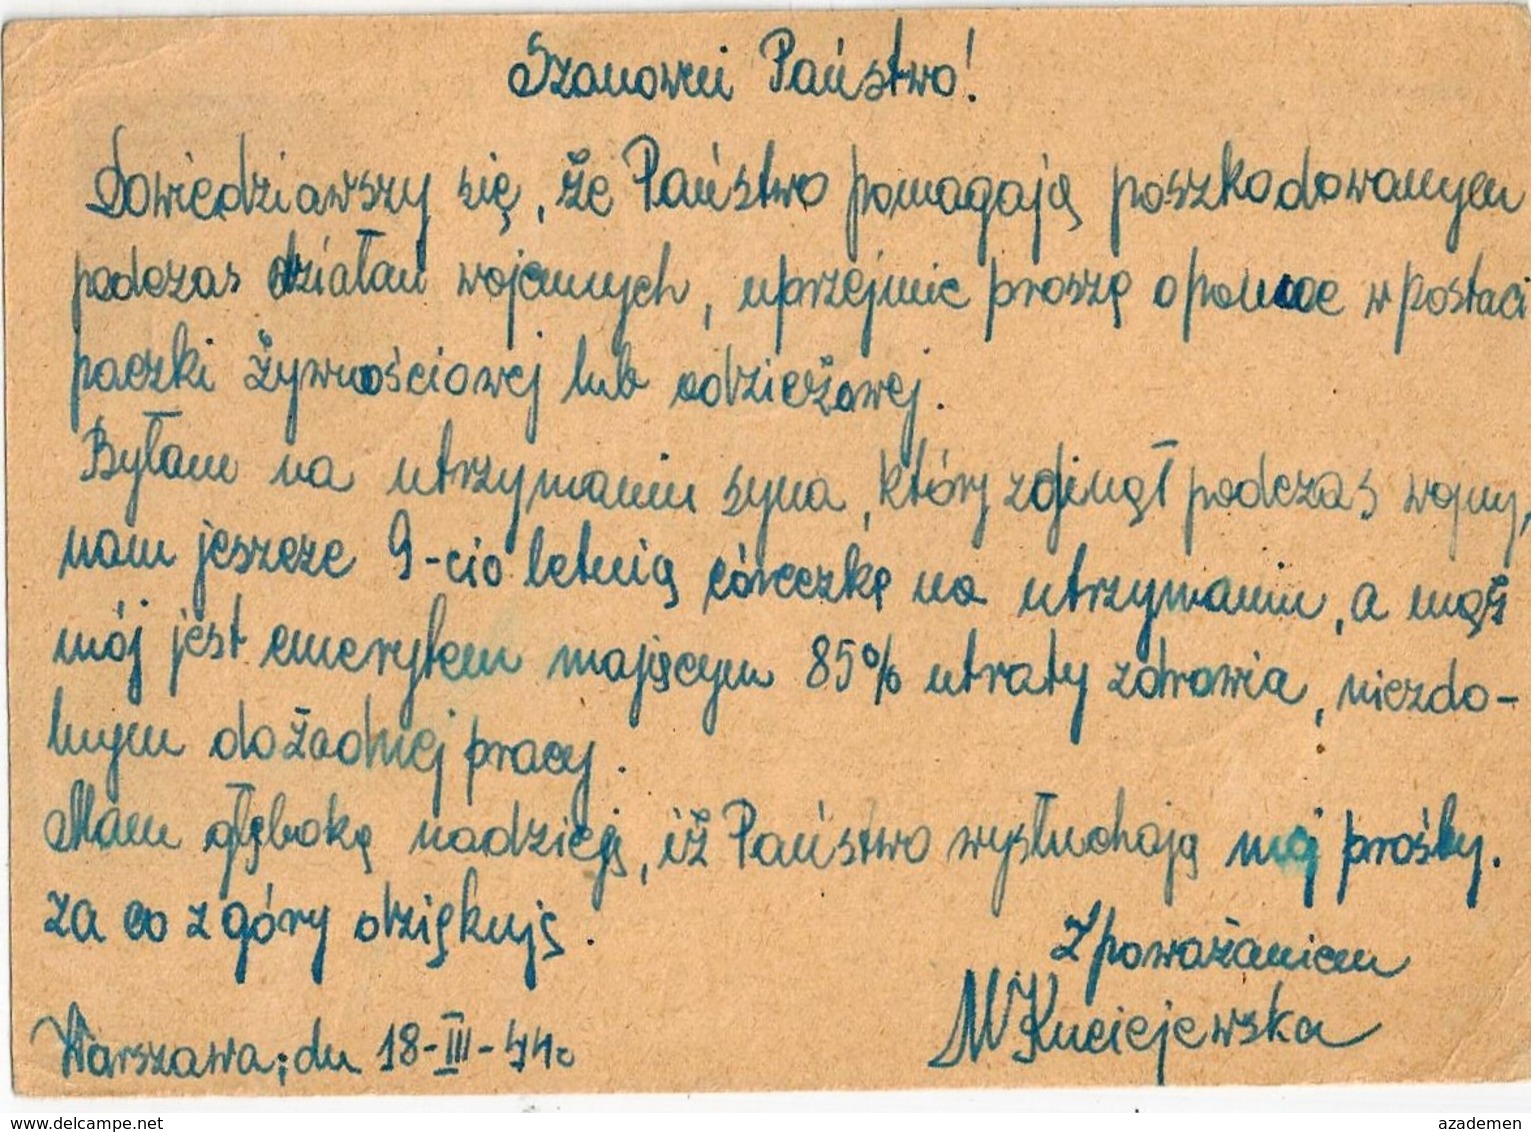 Szanowni Państwo!
Dowiedziawszy się, że Państwo pomagają poszkodowanym
podczas działań wojennych, uprzejmie proszę o pomoc w postaci
paczki żywnościowej lub odzieżowej.
Byłam na utrzymaniu syna, który zginął podczas wojny,
mam jeszcze 9-cio letnią córeczkę na utrzymaniu, a mąż
mój jest emerytem mającym 85% utraty zdrowia, niezdo-
lnym do żadnej pracy.
Mam głęboką nadzieję, iż Państwo wysłuchają mej prośby.
za co z góry dziękuję.
Z poważaniem
M Kuciejewska
Warszawa, dn 18-III-
www.delcampe.net
azademen